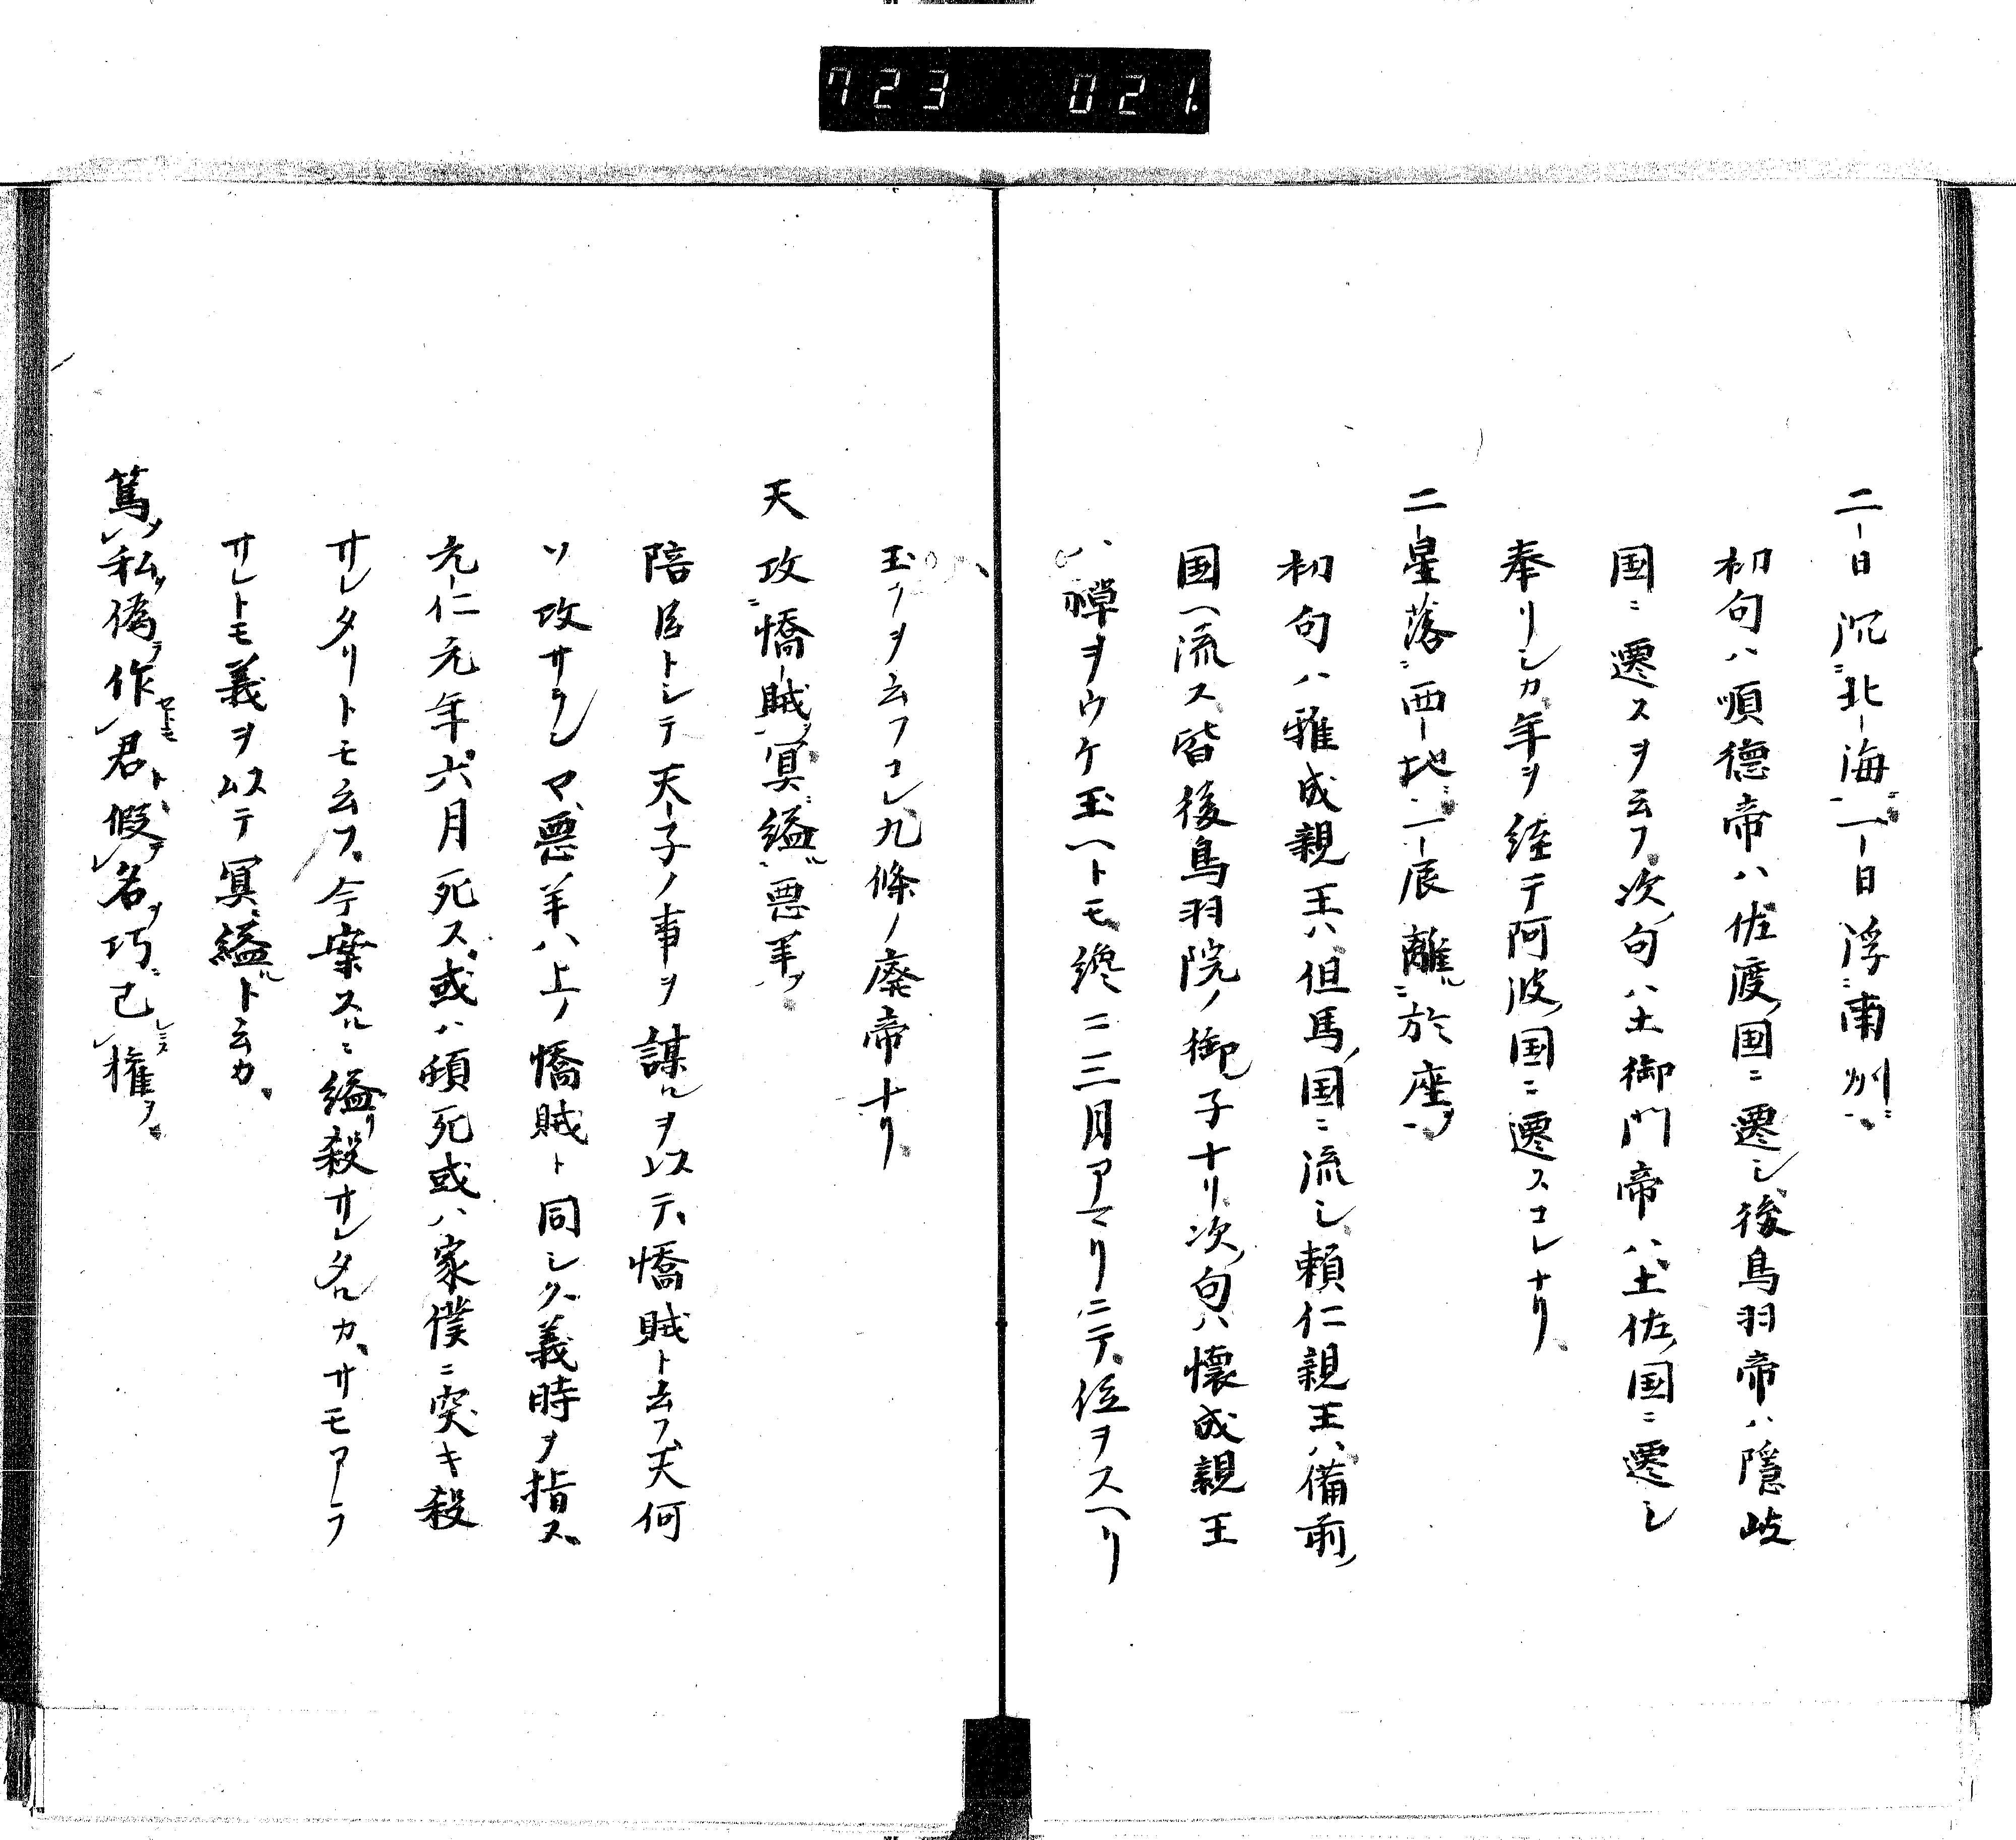 723 021.
二日沉ニ北海ニ一日浮ニ南州ニ
初句ハ順德帝ハ佐渡国ニ遷シ後鳥羽帝ハ隱岐
国ニ遷スヲ云フ次句ハ土御門帝ハ土佐国ニ遷シ
奉リシカ年ヲ経テ阿波国ニ遷スコレナリ
二星落ニ西地ニ一辰離ル於座ヲ
初句ハ雅成親王ハ但馬国ニ流シ頼仁親王ハ備前
国ヘ流ス皆後鳥羽院ノ御子ナリ次句ハ懷成親王
ハ禪ヲウケ玉ヘトモ纔ニ三月アマリニテ位ヲスヘリ
玉フヲ云フコレ九條ノ廢帝ナリ
天攻ニ憍賊ヲ冥ニ縊ル悪羊ヲ
陪臣トシテ天子ノ事ヲ謀ルヲ以テ憍賊ト云フ天何
ソ攻サラシマ悪羊ハ上ノ憍賊ト同シク義時ヲ指ス
元仁元年六月死ス或ハ頓死或ハ家僕ニ突キ殺
サレタリトモ云フ今案スルニ縊リ殺サレタルカサモアラ
サレトモ義ヲ以テ冥ニ縊ルト云カ
篤ノ私ヲ偽テ作君ト假テ名ヲ巧ニ己権ヲ